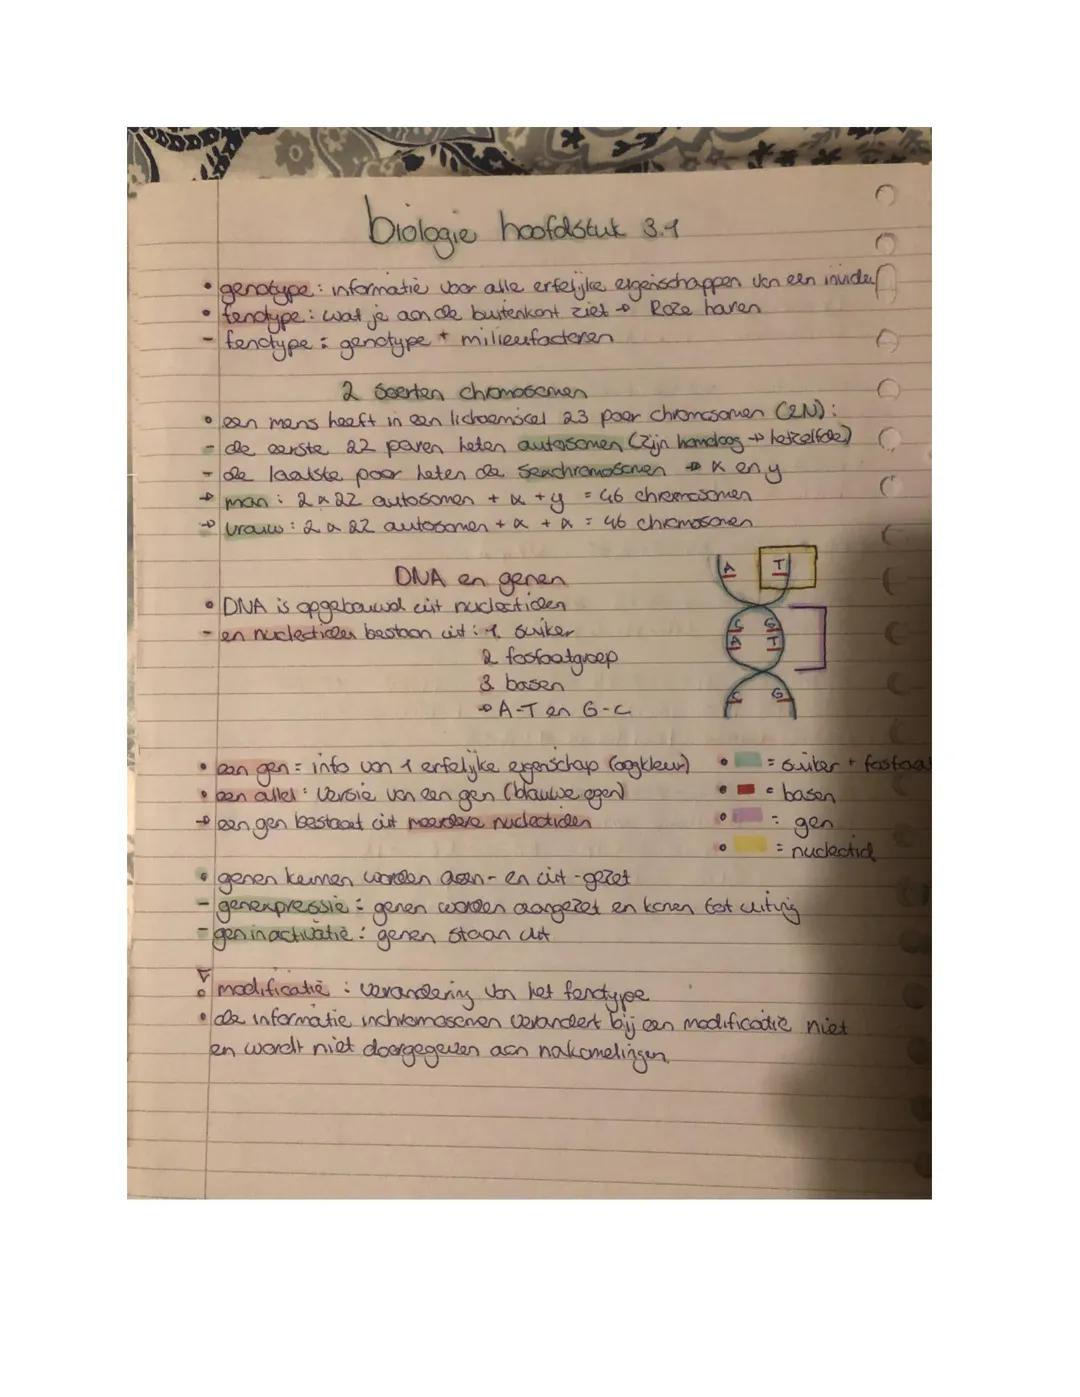 biologie hoofdstuk 3.1
• genotype: informatie voor alle erfelijke eigenschappen van een invidu
• fenotype: wat je aan de buitenkant ziet → Roze haren
- fenotype: genotype + milieufactoren
2 soorten chromosomen
• een mens heeft in een lichaamscel 23 paar chromosomen (2N):
- de eerste 22 paren heten autosomen (zijn homoloog → hetzelfde)
- de laatste paar heten de sexchromosomen → x en y
→ man: 2 x 22 autosomen + x + y = 46 chromosomen
→ vrouw: 2 x 22 autosomen + x + x = 46 chromosomen
DNA en genen
• DNA is opgebouwd uit nucleotiden
- en nucleotiden bestaan uit: 1. suiker
2 fosfaatgroep
3 basen
→ A-T en G-C
A T
C G
A T
C G
• een gen = info van 1 erfelijke eigenschap (oogkleur)
• een allel: versie van een gen (blauwe ogen)
→ een gen bestaat uit meerdere nucleotiden
• = suiker + fosfaa
• = basen
• = gen
• = nucleotid
• genen kunnen worden aan- en uit-gezet
- genexpressie: genen worden aangezet en komen tot uiting
- geninactivatie: genen staan uit
• modificatie: verandering van het fenotype
• de informatie inchromosomen verandert bij een modificatie niet
en wordt niet doorgegeven aan nakomelingen